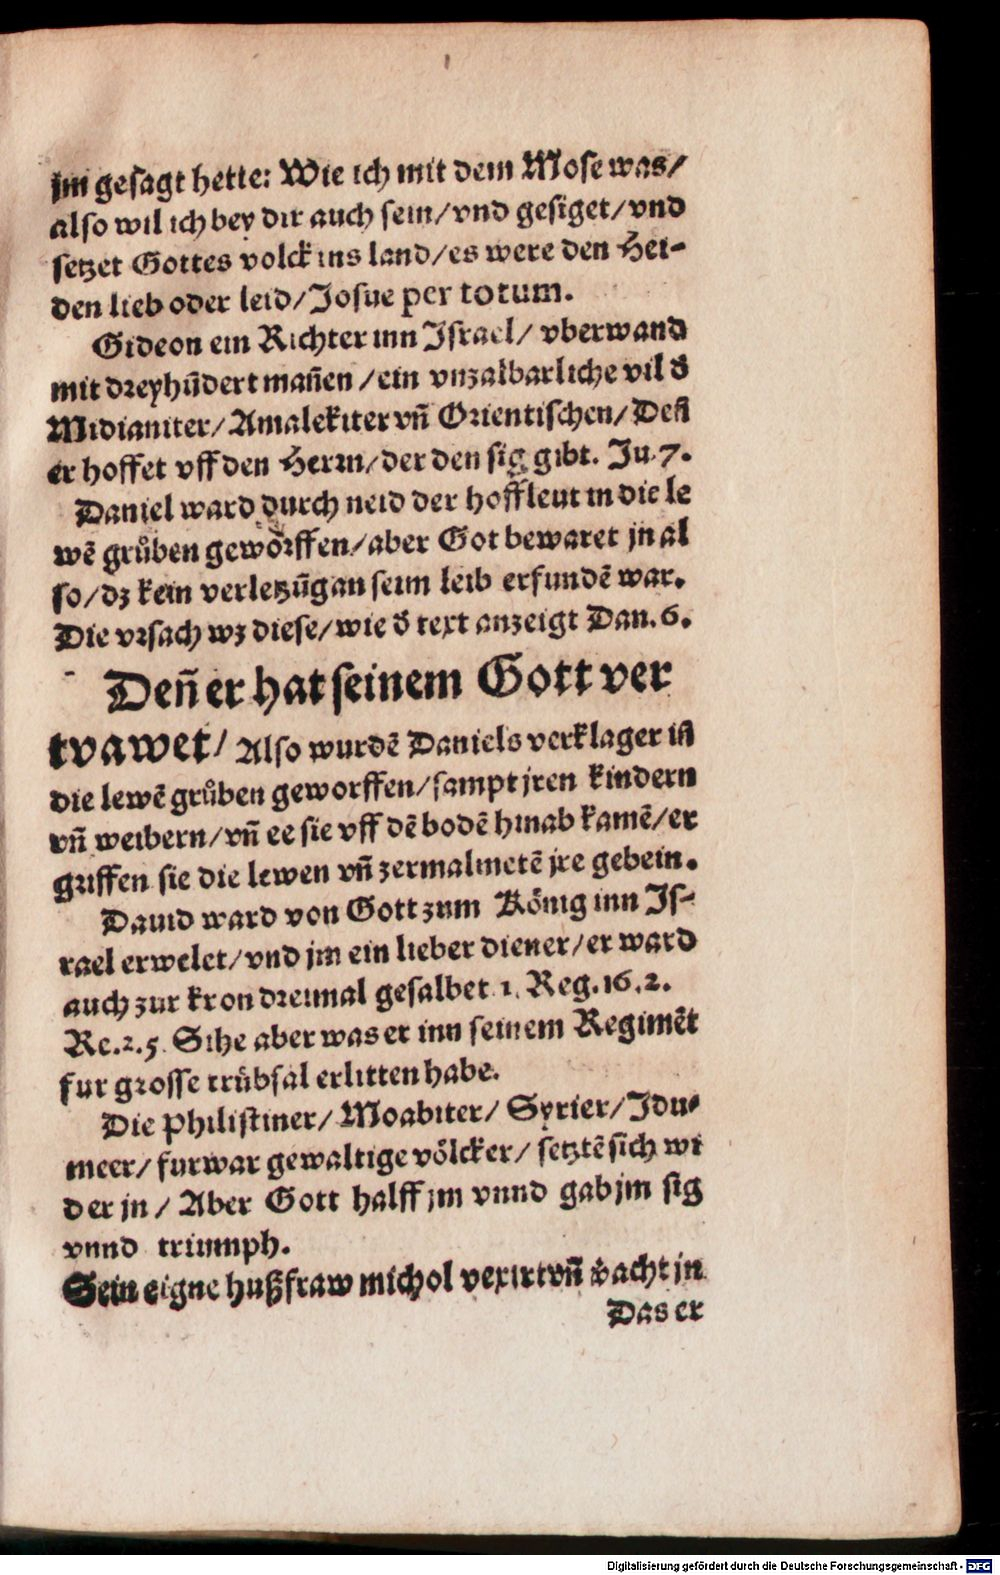 jm gesagt hette: Wie ich mit dem Mose was/
also wil ich bey dir auch sein/vnd gesiget/vnd
setzet Gottes volck ins land/es were den Hei-
den lieb oder leid/Josue per totum.
Gideon ein Richter inn Israel/ vberwand
mit dreyhūdert mañen /ein vnzalbarliche vil d̕
Midianiter/ Amalekiter vñ Orientischen/ Deñ
er hoffet vff den Herrn/der den sig gibt. Ju.7.
Daniel ward durch neid der hoffleut in die le
wē grůben geworffen/aber Got bewaret jn al
so/dz kein verletzūg an seim leib erfundē war.
Die vrsach wz diese/wie d̕ text anzeigt Dan.6.
Deñ er hat seinem Gott ver
trawet/ Also wurdē Daniels verklager in
die lewē grůben geworffen/sampt jren kindern
vñ weibern/vñ ee sie vff dē bodē hinab kamē/er
griffen sie die lewen vñ zermalmetē jre gebein.
Dauid ward von Gott zum König inn Js-
rael erwelet/vnd jm ein lieber diener/er ward
auch zur kron dreimal gesalbet 1. Reg.16.2.
Re.2.5. Sihe aber was er inn seinem Regimēt
fur grosse trübsal erlitten habe.
Die Philistiner/ Moabiter/ Syrier/Jdu-
meer/ furwar gewaltige völcker/ setztē sich wi
der jn/ Aber Gott halff jm vnnd gab jm sig
vnnd triumph.
Sein eigne hußfraw michol vexirt vñ v̕acht jn
Das er
Digitalisierung gefördert durch die Deutsche Forschungsgemeinschaft - DFG